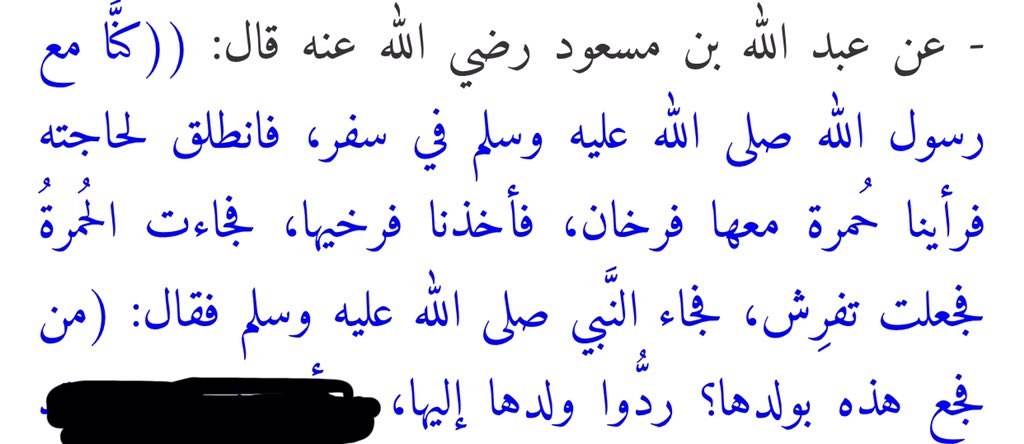 - عن عبد الله بن مسعود رضي الله عنه قال: ((كنَّا مع
رسول الله صلى الله عليه وسلم في سفر، فانطلق لحاجته
فرأينا حُمرة معها فرخان، فأخذنا فرخيها، فجاءت الحُمرةُ
فجعلت تفرِش، فجاء النَّبي صلى الله عليه وسلم فقال: (من
فجع هذه بولدها؟ ردُّوا ولدها إليها،